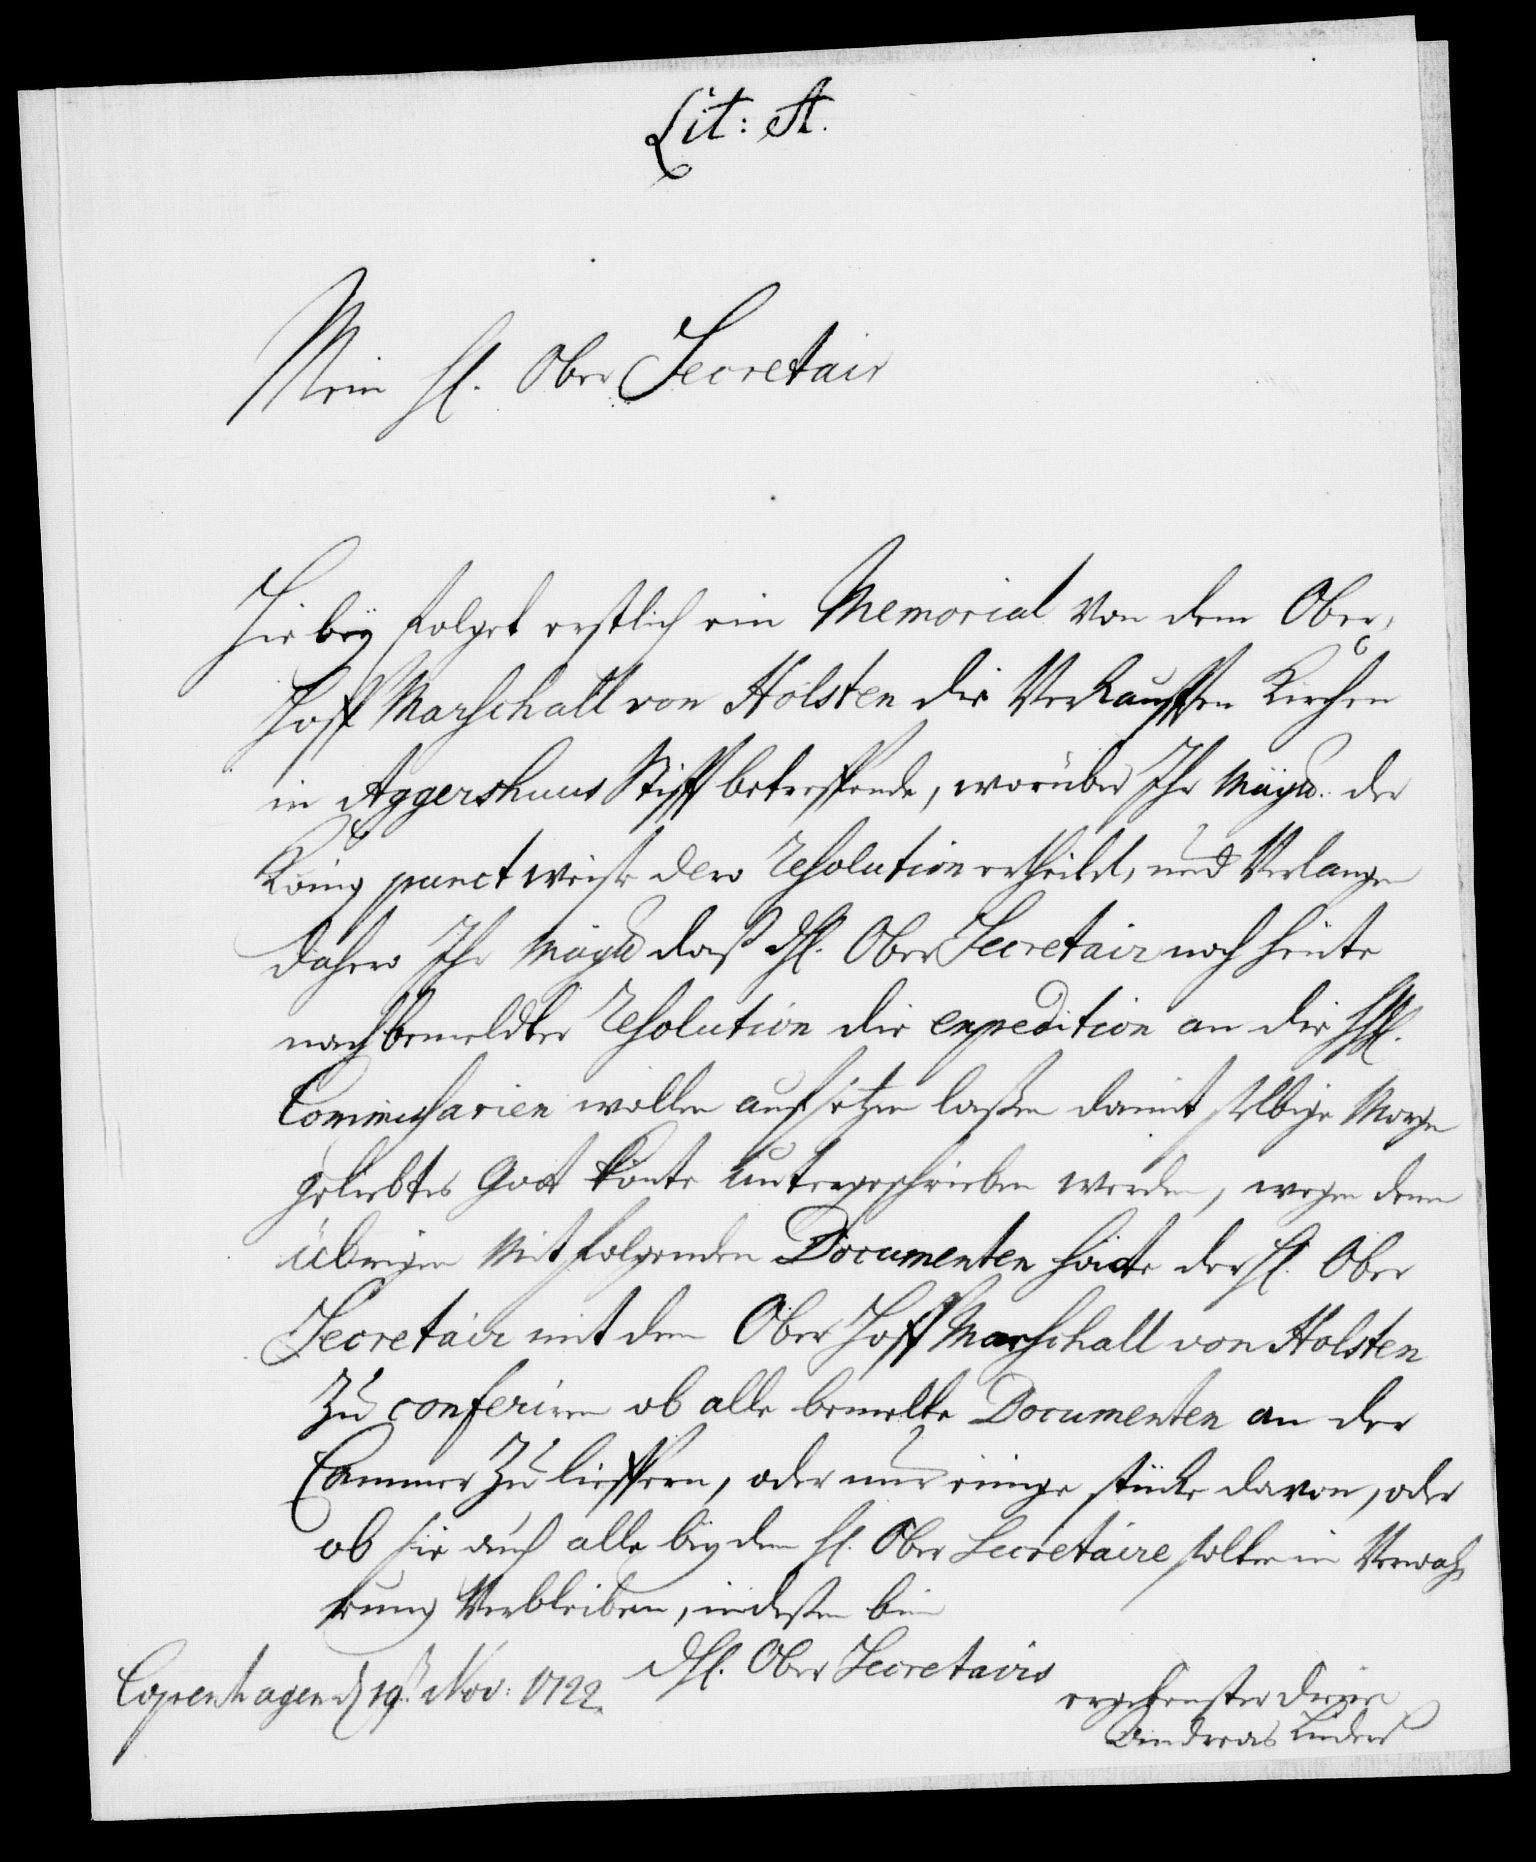 Lit: A.
Mein H. Ober Secretair
Hie bey folget erstlich ein Memorial von dem Ober,
Hoff Marschall von Holsten die Verkaufften Kirchen
in Aggershuus Stifft betreffende, worüber Ihr Mayᵗ. der
König punct weise dero Resolution ertheilet, und Verlangen
dahero Ihr Mayᵗ daß dH. Ober Secretair noch heute
nach bemeldter Resolution die expedition an die HH.
Commissarien wollen aufsetzen laßen damit selbige Morgen
geliebtes Gott könte unterschrieben werden, wegen denen
übrigen Mitfolgenden Documenten hätte der H. Ober
Secretair mit dem Ober Hoff Marschall von Holsten
zu conferiren ob alle bemelte Documenten an der
Cammer zu lieffern, oder nur einige stücke davon, oder
ob sie auch alle bey dem H. Ober Secretaire solten in Verwah
rung Verbleiben, indeßen bin
dH. Ober Secretairs
Copenhagen d 19. Nov: 1722.
ergebenster diener
Andreas Lüders